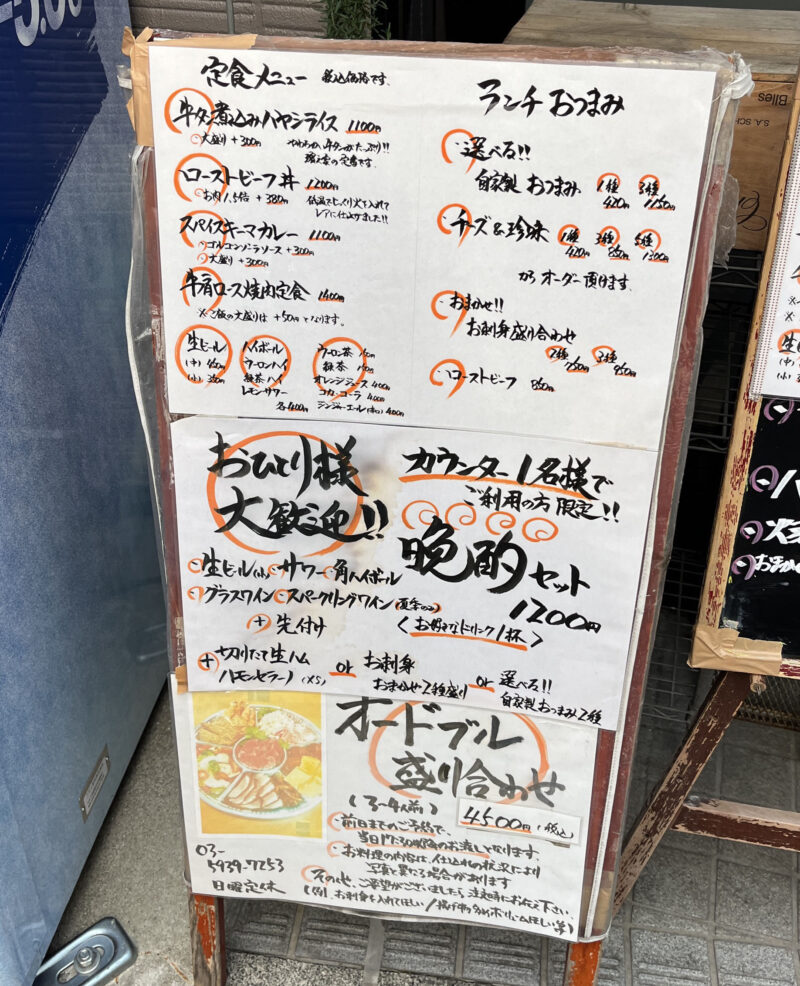 定食メニュー 税込価格です。
牛タン煮込みハヤシライス 1100円
大盛り +300円
やわらか牛タンがたっぷり!!
ローストビーフ丼 1200円
お肉1.5倍 +380円
低温でじっくり火を入れて
レアに仕上げました!!
スパイスキーマカレー 1100円
ゴルゴンゾーラソース +300円
大盛り +300円
牛肩ロース焼肉定食 1400円
※ご飯の大盛りは +50円となります。
生ビール
(中) 450円
(小) 350円
ハイボール
ウーロンハイ
緑茶ハイ
レモンサワー
各400円
ウーロン茶
緑茶
オレンジジュース 400円
コカ・コーラ 400円
ジンジャーエール 400円
ランチ おつまみ
・選べる!!
自家製 おつまみ 1種 420円 3種 1150円
・チーズ&珍味 1種 420円 3種 850円 5種 1300円
から オーダー頂けます。
・おまかせ!!
お刺身盛り合わせ
2種 750円 3種 950円
・ローストビーフ 850円
おひとり様
大歓迎!!
カウンター1名様で
ご利用の方 限定!!
晩酌セット
1200円
<お好きなドリンク1杯>
・生ビール(小)・サワー・角ハイボール
・グラスワイン・スパークリングワイン(夏季のみ)
+ 先付け
+ 切りたて生ハム
ハモンセラーノ (XS)
or
お刺身
おまかせ2種盛り
or
選べる!!
自家製おつまみ2種
オードブル
盛り合わせ
(3~4人前)
4500円(税込)
・前日までのご予約で、
当日17:30以降のお渡しとなります。
・お料理の内容は、仕入れの状況により
写真と異なる場合があります
・その他、ご要望がございましたら注文時にお伝え下さい。
03-
5939-7253
日曜定休
Blles
S.A. SC